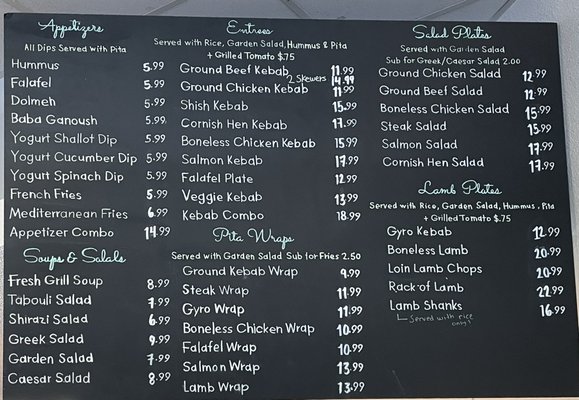 Appetizers
All Dips Served with Pita
Hummus 5.99
Falafel 5.99
Dolmeh 5.99
Baba Ganoush 5.99
Yogurt Shallot Dip 5.99
Yogurt Cucumber Dip 5.99
Yogurt Spinach Dip 5.99
French Fries 5.99
Mediterranean Fries 6.99
Appetizer Combo 14.99
Soups & Salads
Fresh Grill Soup 8.99
Tabouli Salad 7.99
Shirazi Salad 6.99
Greek Salad 9.99
Garden Salad 7.99
Caesar Salad 8.99
Entrees
Served with Rice, Garden Salad, Hummus & Pita
+ Grilled Tomato $.75
Ground Beef Kebab 11.99
2 Skewers 14.99
Ground Chicken Kebab 11.99
Shish Kebab 15.99
Cornish Hen Kebab 17.99
Boneless Chicken Kebab 15.99
Salmon Kebab 17.99
Falafel Plate 12.99
Veggie Kebab 13.99
Kebab Combo 18.99
Pita Wraps
Served with Garden Salad Sub for Fries 2.50
Ground Kebab Wrap 9.99
Steak Wrap 11.99
Gyro Wrap 11.99
Boneless Chicken Wrap 10.99
Falafel Wrap 10.99
Salmon Wrap 13.99
Lamb Wrap 13.99
Salad Plates
Served with Garden Salad
Sub for Greek/Caesar Salad 2.00
Ground Chicken Salad 12.99
Ground Beef Salad 12.99
Boneless Chicken Salad 15.99
Steak Salad 15.99
Salmon Salad 17.99
Cornish Hen Salad 17.99
Lamb Plates
Served with Rice, Garden Salad, Hummus, Pita
+ Grilled Tomato $.75
Gyro Kebab 12.99
Boneless Lamb 20.99
Loin Lamb Chops 20.99
Rack of Lamb 22.99
Lamb Shanks 16.99
Served with rice
only!